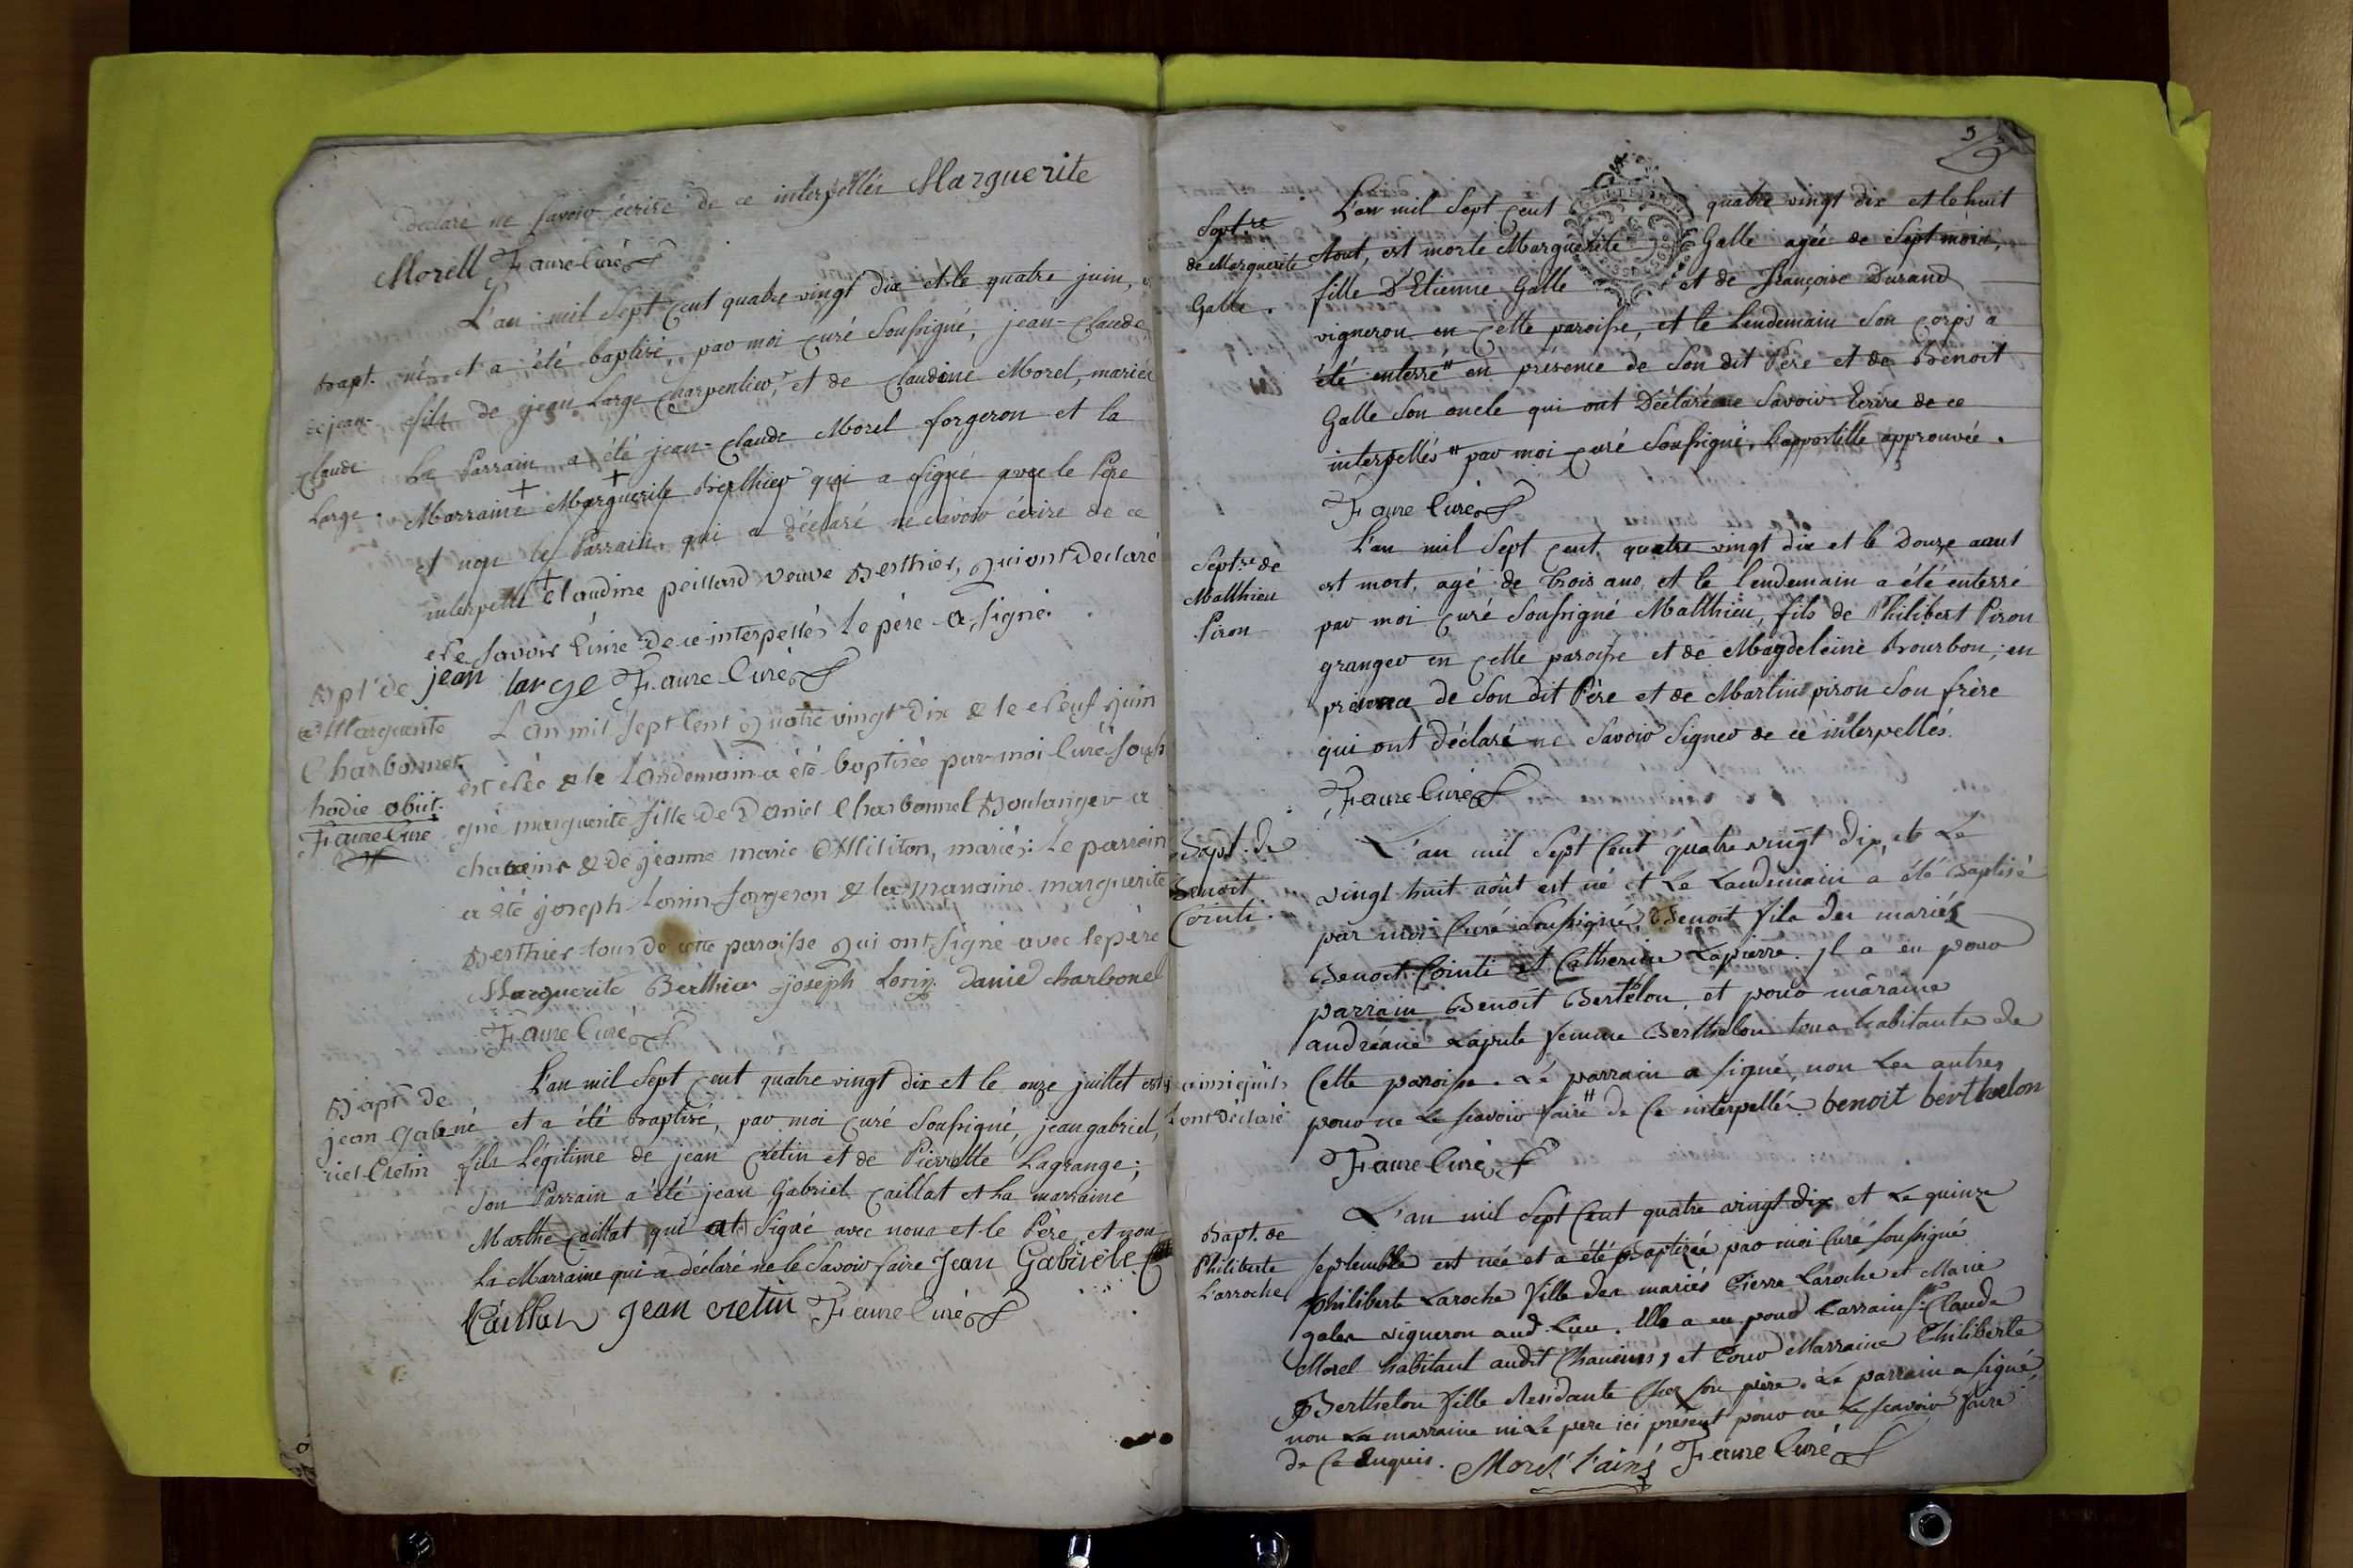 declaré ne savoir écrire de ce interpellés Marguerite
Morell Faure Curé
L'an mil Sept cent quatre vingt dix et le quatre juin,
Bapt.
de jean-
claude
Large.
né et a été baptisé, par moi curé Soussigné, jean-claude
fils de jean Large charpentier, et de claudine Morel, mariés
Le Parrain a été jean-claude Morel forgeron et la
Marraine Marguerite Berthier qui a signé avec le Père
et non le Parrain qui a déclaré ne savoir écrire de ce
interpellé claudine peillard veuve Berthier, qui ont declaré
ne savoir écrire de ce interpellés le père a signé.
jean large Faure Curé
Bpt de
Marguerite
Charbonnet
hodie obiit.
Faure Curé
L'an mil sept cent quatre vingt dix & le neuf juin
est née & le Landemain a été baptisée par moi Curé soussi
gné marguerite fille de Daniel Charbonnel Boulanger a
chaveins & de jeanne marie Militon, mariés: le parrein
a été joseph Lorin forgeron & la maraine marguerite
Berthier tous de cette paroisse qui ont signé avec le père
Marguerite Berthier joseph Lorin Daniel charbonel
Faure Curé
Bapt de
jean Gab
riel Cretin
L'an mil Sept cent quatre vingt dix et le onze juillet est
né et a été Baptisé, par moi curé Soussigné, jean gabriel,
fils Légitime de jean cretin et de Pierrette Lagrange;
Son Parrain a été jean Gabriel caillat et La marraine
Marthe caillat qui ont signé avec nous et le Père et non
La Marraine qui a déclaré ne le Savoir faire Jean Gabriele
Caillat jean cretin Faure Curé
3
Sept.re
de Marguerite
Galle.
L'an mil Sept Cent quatre vingt dix et le huit
Aout, est morte Marguerite Galle agée de Sept mois,
fille D'Etienne Galle et de Françoise Durand
vigneron en cette paroisse, et le Lendemain Son corps a
été enterré # en présence de Son dit Père et de Benoit
Galle Son oncle qui ont Déclaré ne Savoir Ecrire de ce
interpellés # par moi curé Soussigné, L'appostille approuvée.
Faure Curé
Sept.re de
Matthieu
Piron
L'an mil Sept cent quatre vingt dix et le Douze aout
est mort, agé de trois ans, et le lendemain a été enterré
par moi curé Soussigné Matthieu, fils de Philibert Piron
granger en cette paroisse et de Magdeleine Bourbon, en
présence de Son dit Père et de Martin piron Son frère
qui ont déclaré ne Savoir Signer de ce interpellés.
Faure Curé
Bapt. de
Benoit
Cointi.
L'an mil Sept Cent quatre vingt dix, et Le
vingt huit août est né et Le Landemain a été Baptisé
par moi Curé Soussigné, Benoit fils des mariés
Benoit Cointi et Catherine Lapierre. Il a eu pour
parrain Benoit Bertélon, et pour màraine
andréane femme Berthelon tous habitants de
Cette paroisse. Le parrain a signé, non Les autres
pour ne Le scavoir faire # de Ce interpellés. benoit berthelon
# ainsi qu'ils
l'ont déclaré
Faure Curé
Bapt. de
Philiberte
Larroche
L'an mil Sept Cent quatre vingt dix et Le quinze
septembre est née et a été Baptizée par moi Curé soussigné
philiberte Laroche fille des mariés Pierre Laroche et Marie
gales vigneron aud. Lieu. Elle a eu pour Parrain s.r Claude
Morel habitant audit Chaveins, et Pour Marraine Philiberte
Berthelon fille Residante Chez son père. Le parrain a signé,
non La marraine ni Le pere ici présent pour ne Le scavoir faire
de Ce Enquis. Morel l'ainé Faure Curé